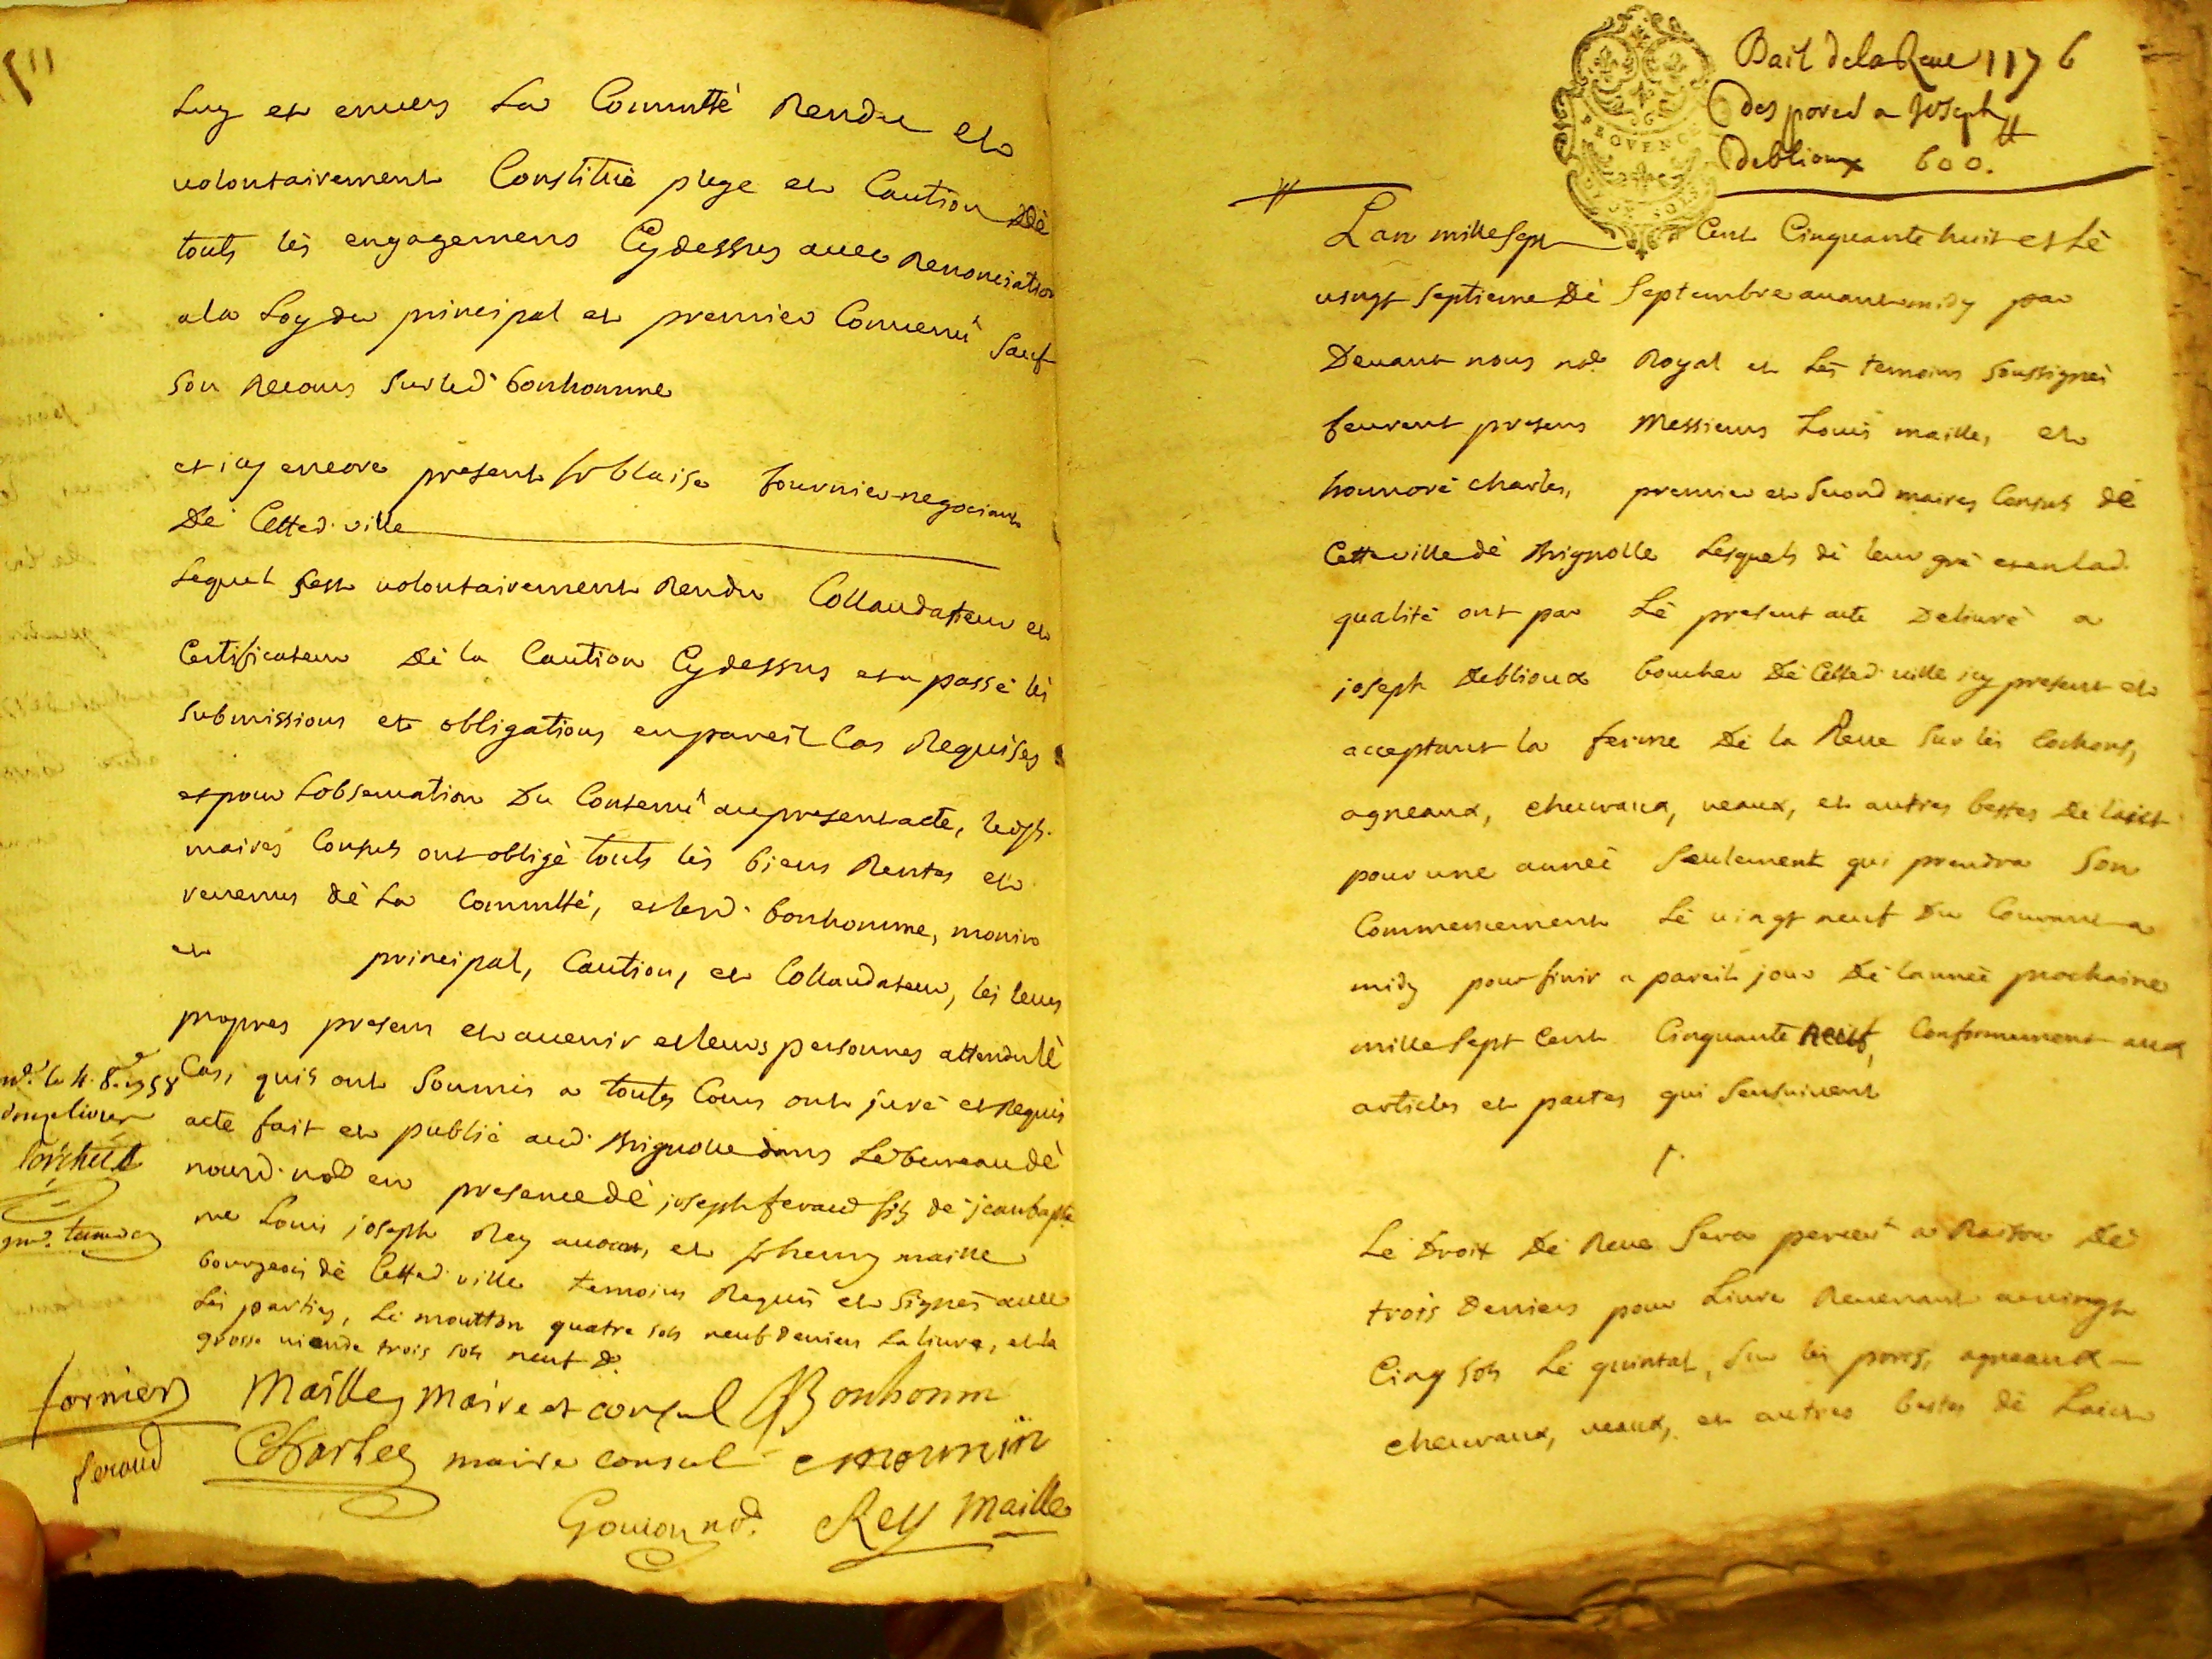 luy et envers la Commtté Rendu et
volontairement Constitué plege et Caution Dé
touts lés engagemens Cydessus avec Renonciation
a la Loy du principal et premier Convenu Sauf
son Recours sur led. bonhomme
et icy encore present sr blaise fournier negociant
Dé Cetted. ville
Lequel sest volontairement Rendu Collaudateur et
Certificateur Dé la Caution Cydessus et a passé lés
submissions et obligations en pareil Cas Requises
et pour Lobservation Du Contenu au present acte, lesds.
maires Consuls ont obligé touts lés biens Rentes et
revenus dé La Commtté, et lesd. bonhomme, monin
et principal, Caution, et Collaudateur, lés leurs
propres presens et avenir et leurs personnes attendu lé
Cas, quils ont soumis a toutes Cours ont juré et Requis
acte fait et publié aud. Brignolle dans Le bureau dé
nousd. nore en presence dé joseph feraud fils de jean bapte
me Louis joseph Rey avocat, et sr henry maille
bourgeois dé Cetted. ville temoins Requis et signés avec
Lés parties, Lé moutton quatre sols neuf deniers La livre, et la
grosse viande trois sols neuf d.
fornier Maille maire et consul Bonhomm
feraud Charles maire consul mounin
Goujon nore. Rey Maille
Bail de la Reve 1176
des porcs a Joseph
deblioux 600.tt
PROVENCE
Lan mille sept Cent Cinquante huit et lé
vingt septieme Dé septembre avant midy par
Devant nous nore. Royal et Lés temoins soussignés
feurent presens Messieurs Louis maille, et
honnoré charles, premier et second maires Consuls dé
Cette ville dé Brignolle Lesquels dé leur gré et en lad.
qualité ont par Lé present acte Delivré a
joseph Deblioux boucher Dé Cetted. ville icy present et
acceptant la ferme Dé la Reve sur lés cochons,
agneaux, chevraux, veaux, et autres bestes De laict
pour une année seulement qui prendra son
Commencement Lé vingt neuf Du Courant a
midy pour finir a pareil jour Dé lannée prochaine
mille sept Cent Cinquante neuf, Conformement aux
articles et pactes qui sensuivent
1.
Le Droit Dé Reve sera perceu a Raison Dé
trois Deniers pour Livre Revenant a vingt
Cinq sols Lé quintal, sur lés porcs, agneaux
chevraux, veaux, et autres bestes dé Laict